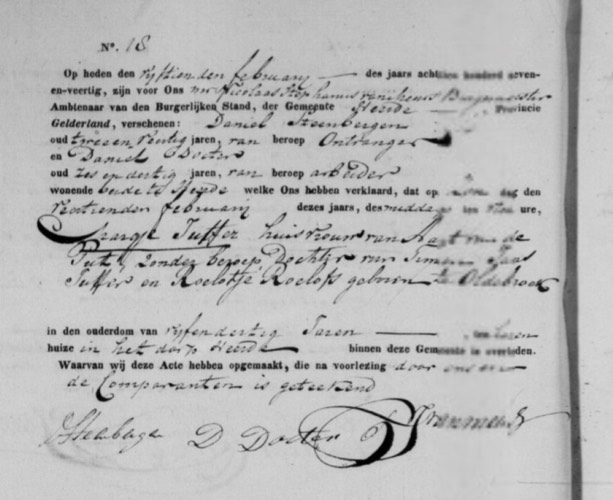 N°. 18
Op heden den vijftienden february des jaars achttien honderd zeven-
en-veertig, zijn voor Ons mr Nicolaas Stephanus Burgemeester
Ambtenaar van den Burgerlijken Stand, der Gemeente Heerde Provincie
Gelderland, verschenen: Daniel Steenbergen
oud twee en veertig jaren, van beroep Ontvanger
en Daniel Docter
oud zes en dertig jaren, van beroep arbeider
wonende beide te Heerde welke Ons hebben verklaard, dat op den
veertienden february dezes jaars, des middags ten ure,
Maatje Juffer huisvrouw van Aart van de
Put, zonder beroep Dochter van Simen Jaas
Juffer en Roelofje Roelofs geboren te Oldebroek
in den ouderdom van vijf en dertig Jaren ten haren
huize in het dorp Heerde binnen deze Gemeente is overleden.
Waarvan wij deze Acte hebben opgemaakt, die na voorlezing door ons en
de Comparanten is geteekend
D Docter